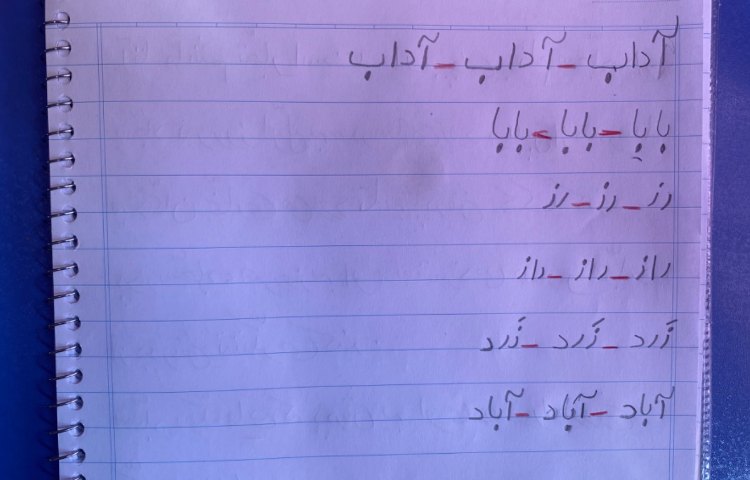 آداب - آداب - آداب
بابا - بابا - بابا
رز - رز - رز
راز - راز - راز
زَرد - زَرد - زَرد
آباد - آباد - آباد